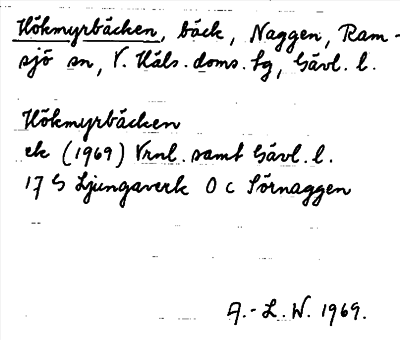 Hökmyrbäcken, bäck, Naggen, Ram-
sjö sn, V. Häls. doms. tg, Gävl. l.
Hökmyrbäcken
ek (1969) Vrnl. samt Gävl. l.
17 G Ljungaverk 0 c Sörnaggen
A.-L. W. 1969.